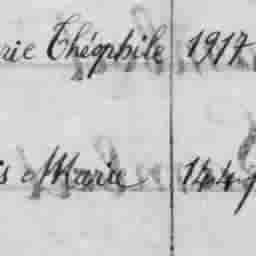 rie Théophile 1917
is Marie 144